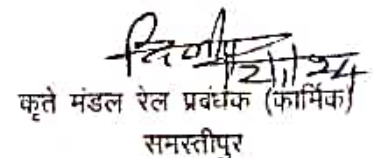 2/1/24
कृते मंडल रेल प्रबंधक (कार्मिक)
समस्तीपुर